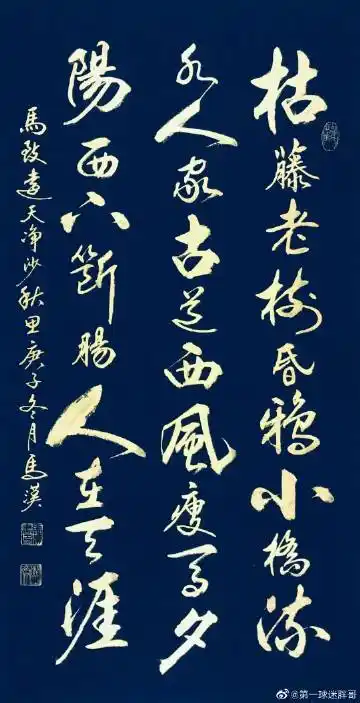 枯藤老樹昏鴉小橋流
水人家古道西風瘦馬夕
陽西下斷腸人在天涯
馬致遠天净沙秋思庚子冬月馬漢
@第一球迷胖哥